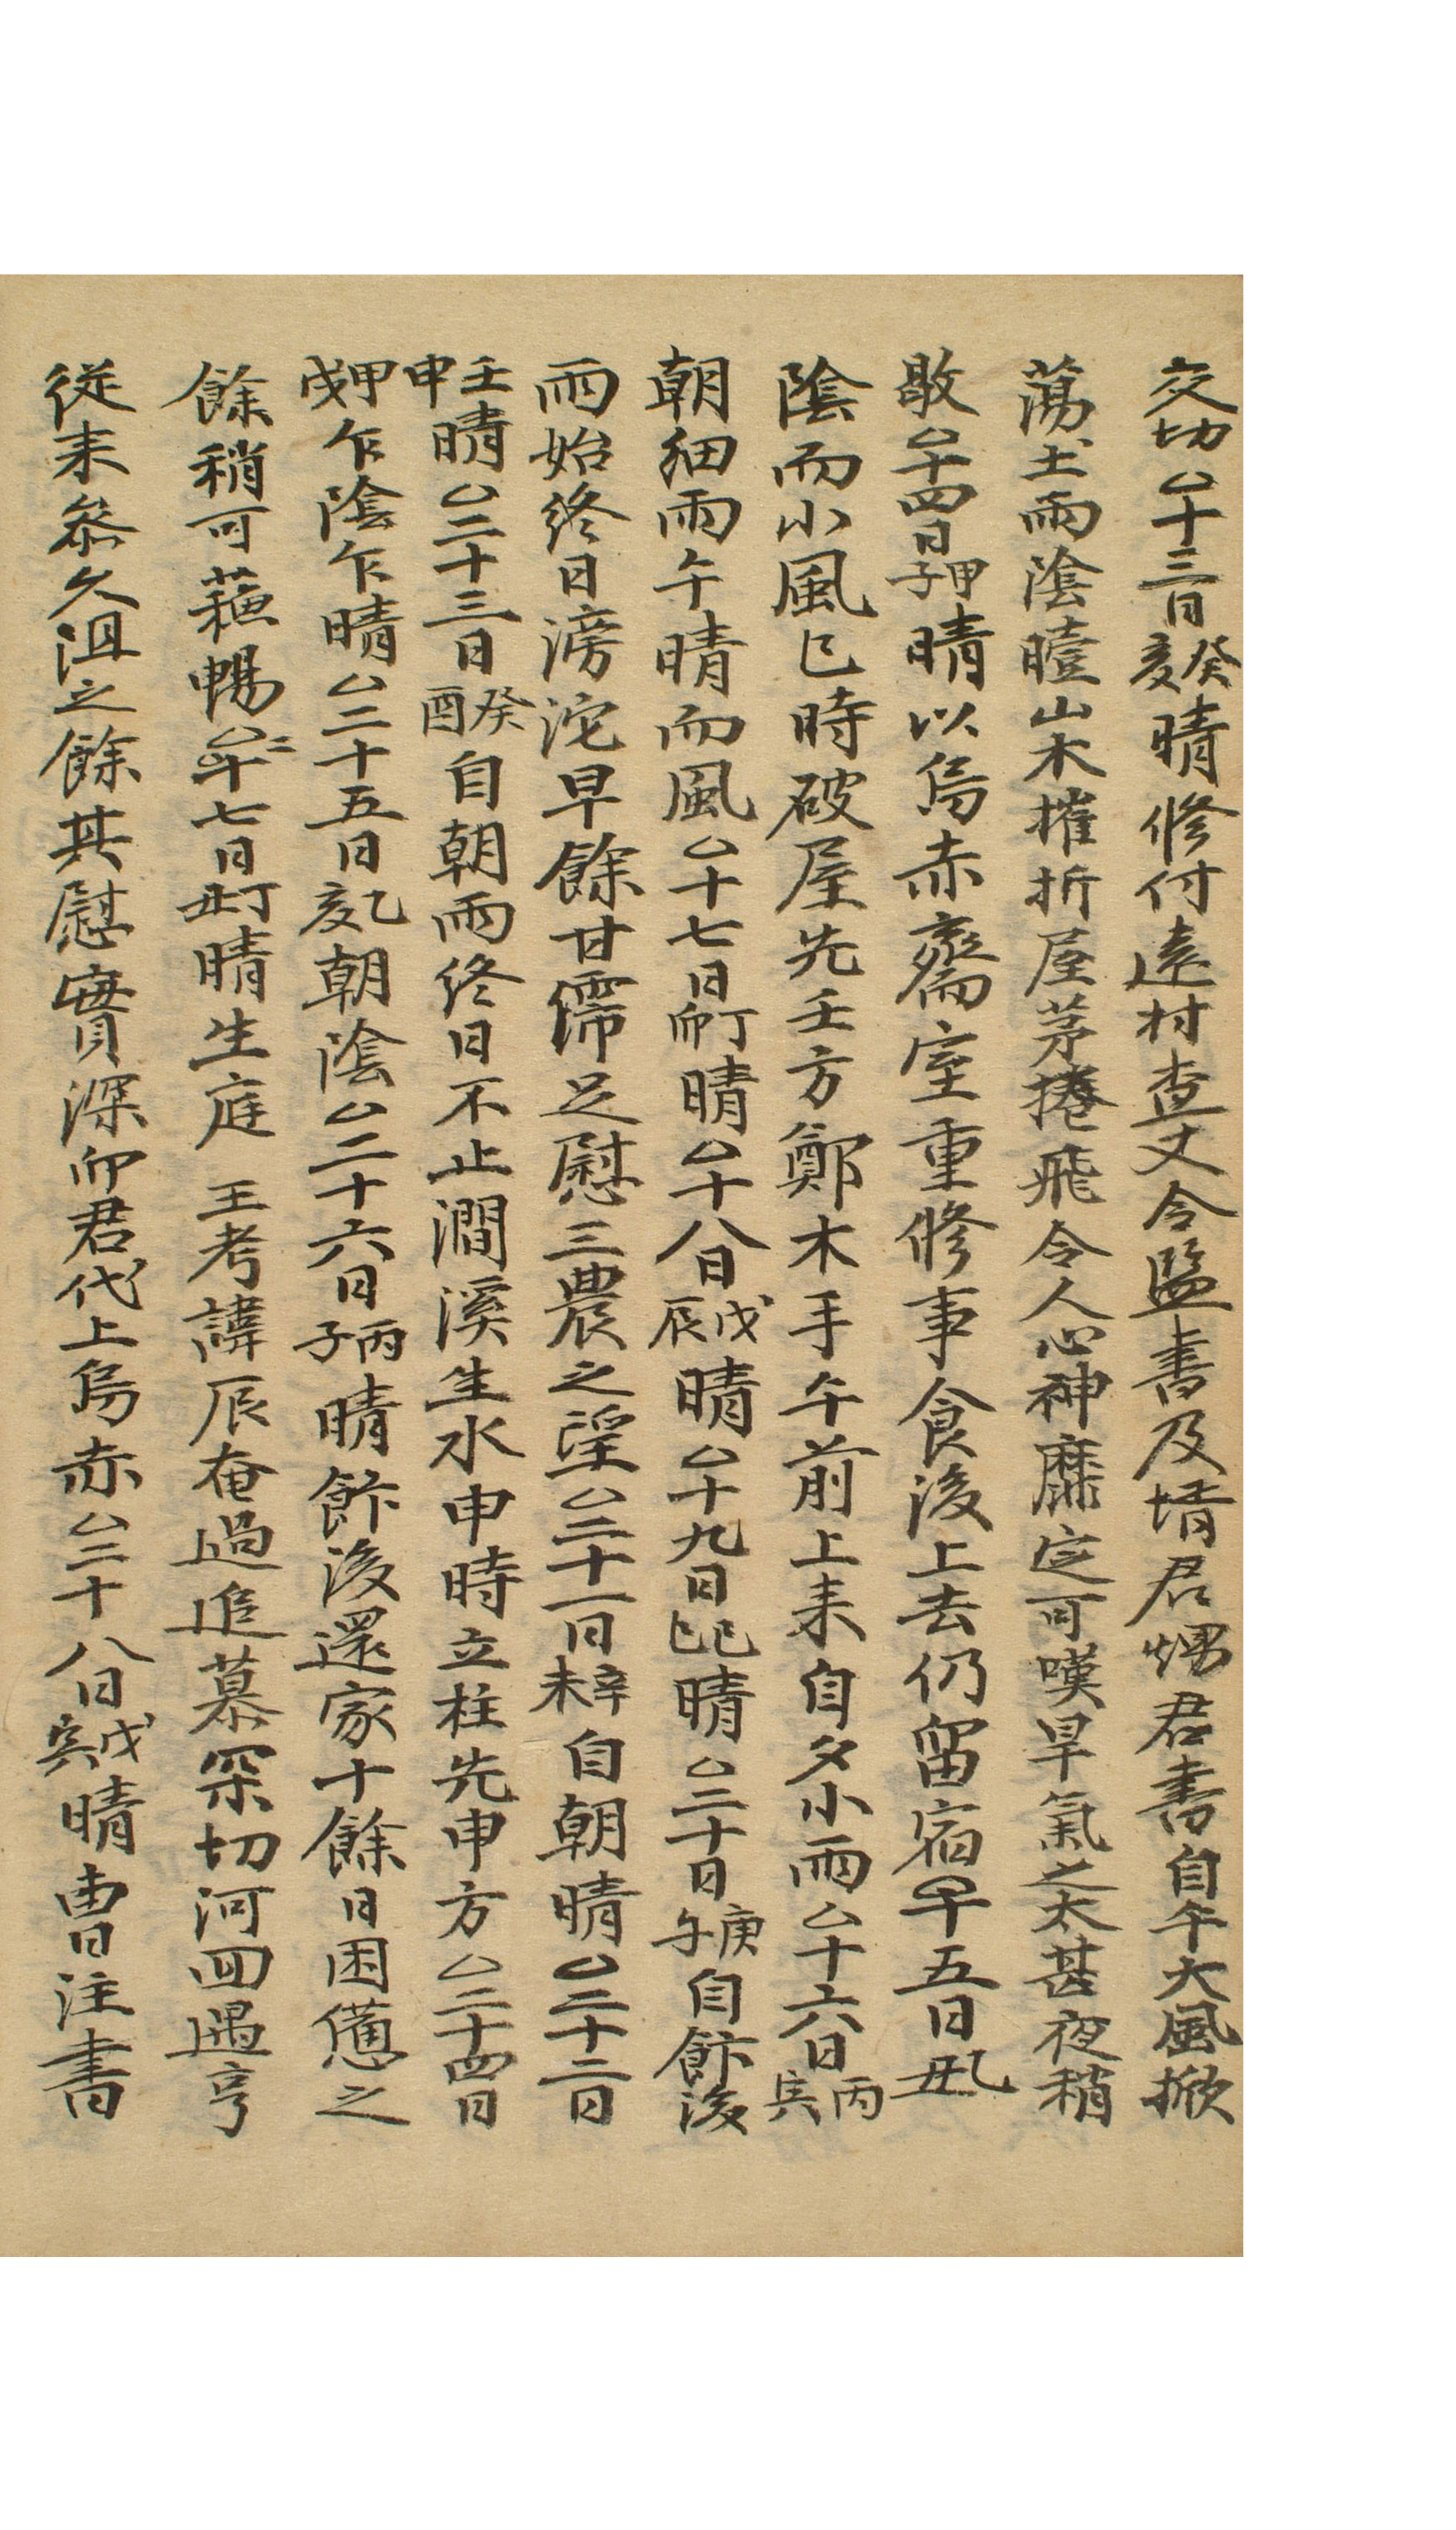 交切△十三日癸亥晴修付遠村査丈令監書及壻君甥君書自午大風掀
蕩土雨陰曀山木摧折屋茅捲飛令人心神靡定可嘆旱氣之太甚夜稍
歇△十四日甲子晴以烏赤齋室重修事食後上去仍留宿△十五日乙丑
陰而小風巳時破屋先壬方鄭木手午前上来自夕小雨△十六日丙寅
朝細雨午晴而風△十七日丁卯晴△十八日戊辰晴△十九日己巳晴△二十日庚午自飰後
雨始終日滂沱旱餘甘霈足慰三農之望△二十一日辛未自朝晴△二十二日
壬申晴△二十三日癸酉自朝雨終日不止澗溪生水申時立柱先申方△二十四日
甲戌乍陰乍晴△二十五日乙亥朝陰△二十六日丙子晴飰後還家十餘日困憊之
餘稍可蘓暢△二十七日丁丑晴生庭 王考諱辰奄過追慕深切河回遇亨
從来叅久沮之餘其慰實深卯君代上烏赤△二十八日戊寅晴曺注書